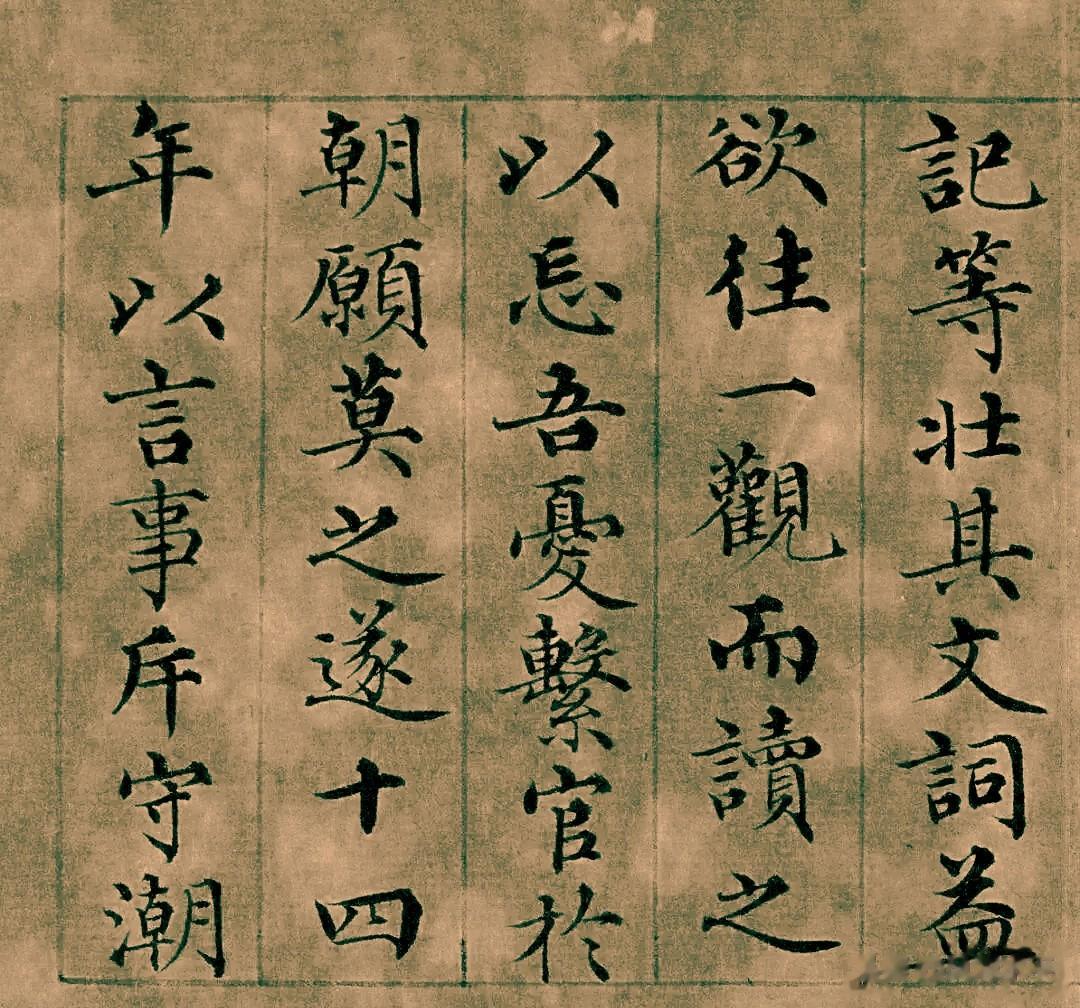 記等壯其文詞益
欲往一觀而讀之
以忘吾憂繫官於
朝願莫之遂十四
年以言事斥守潮